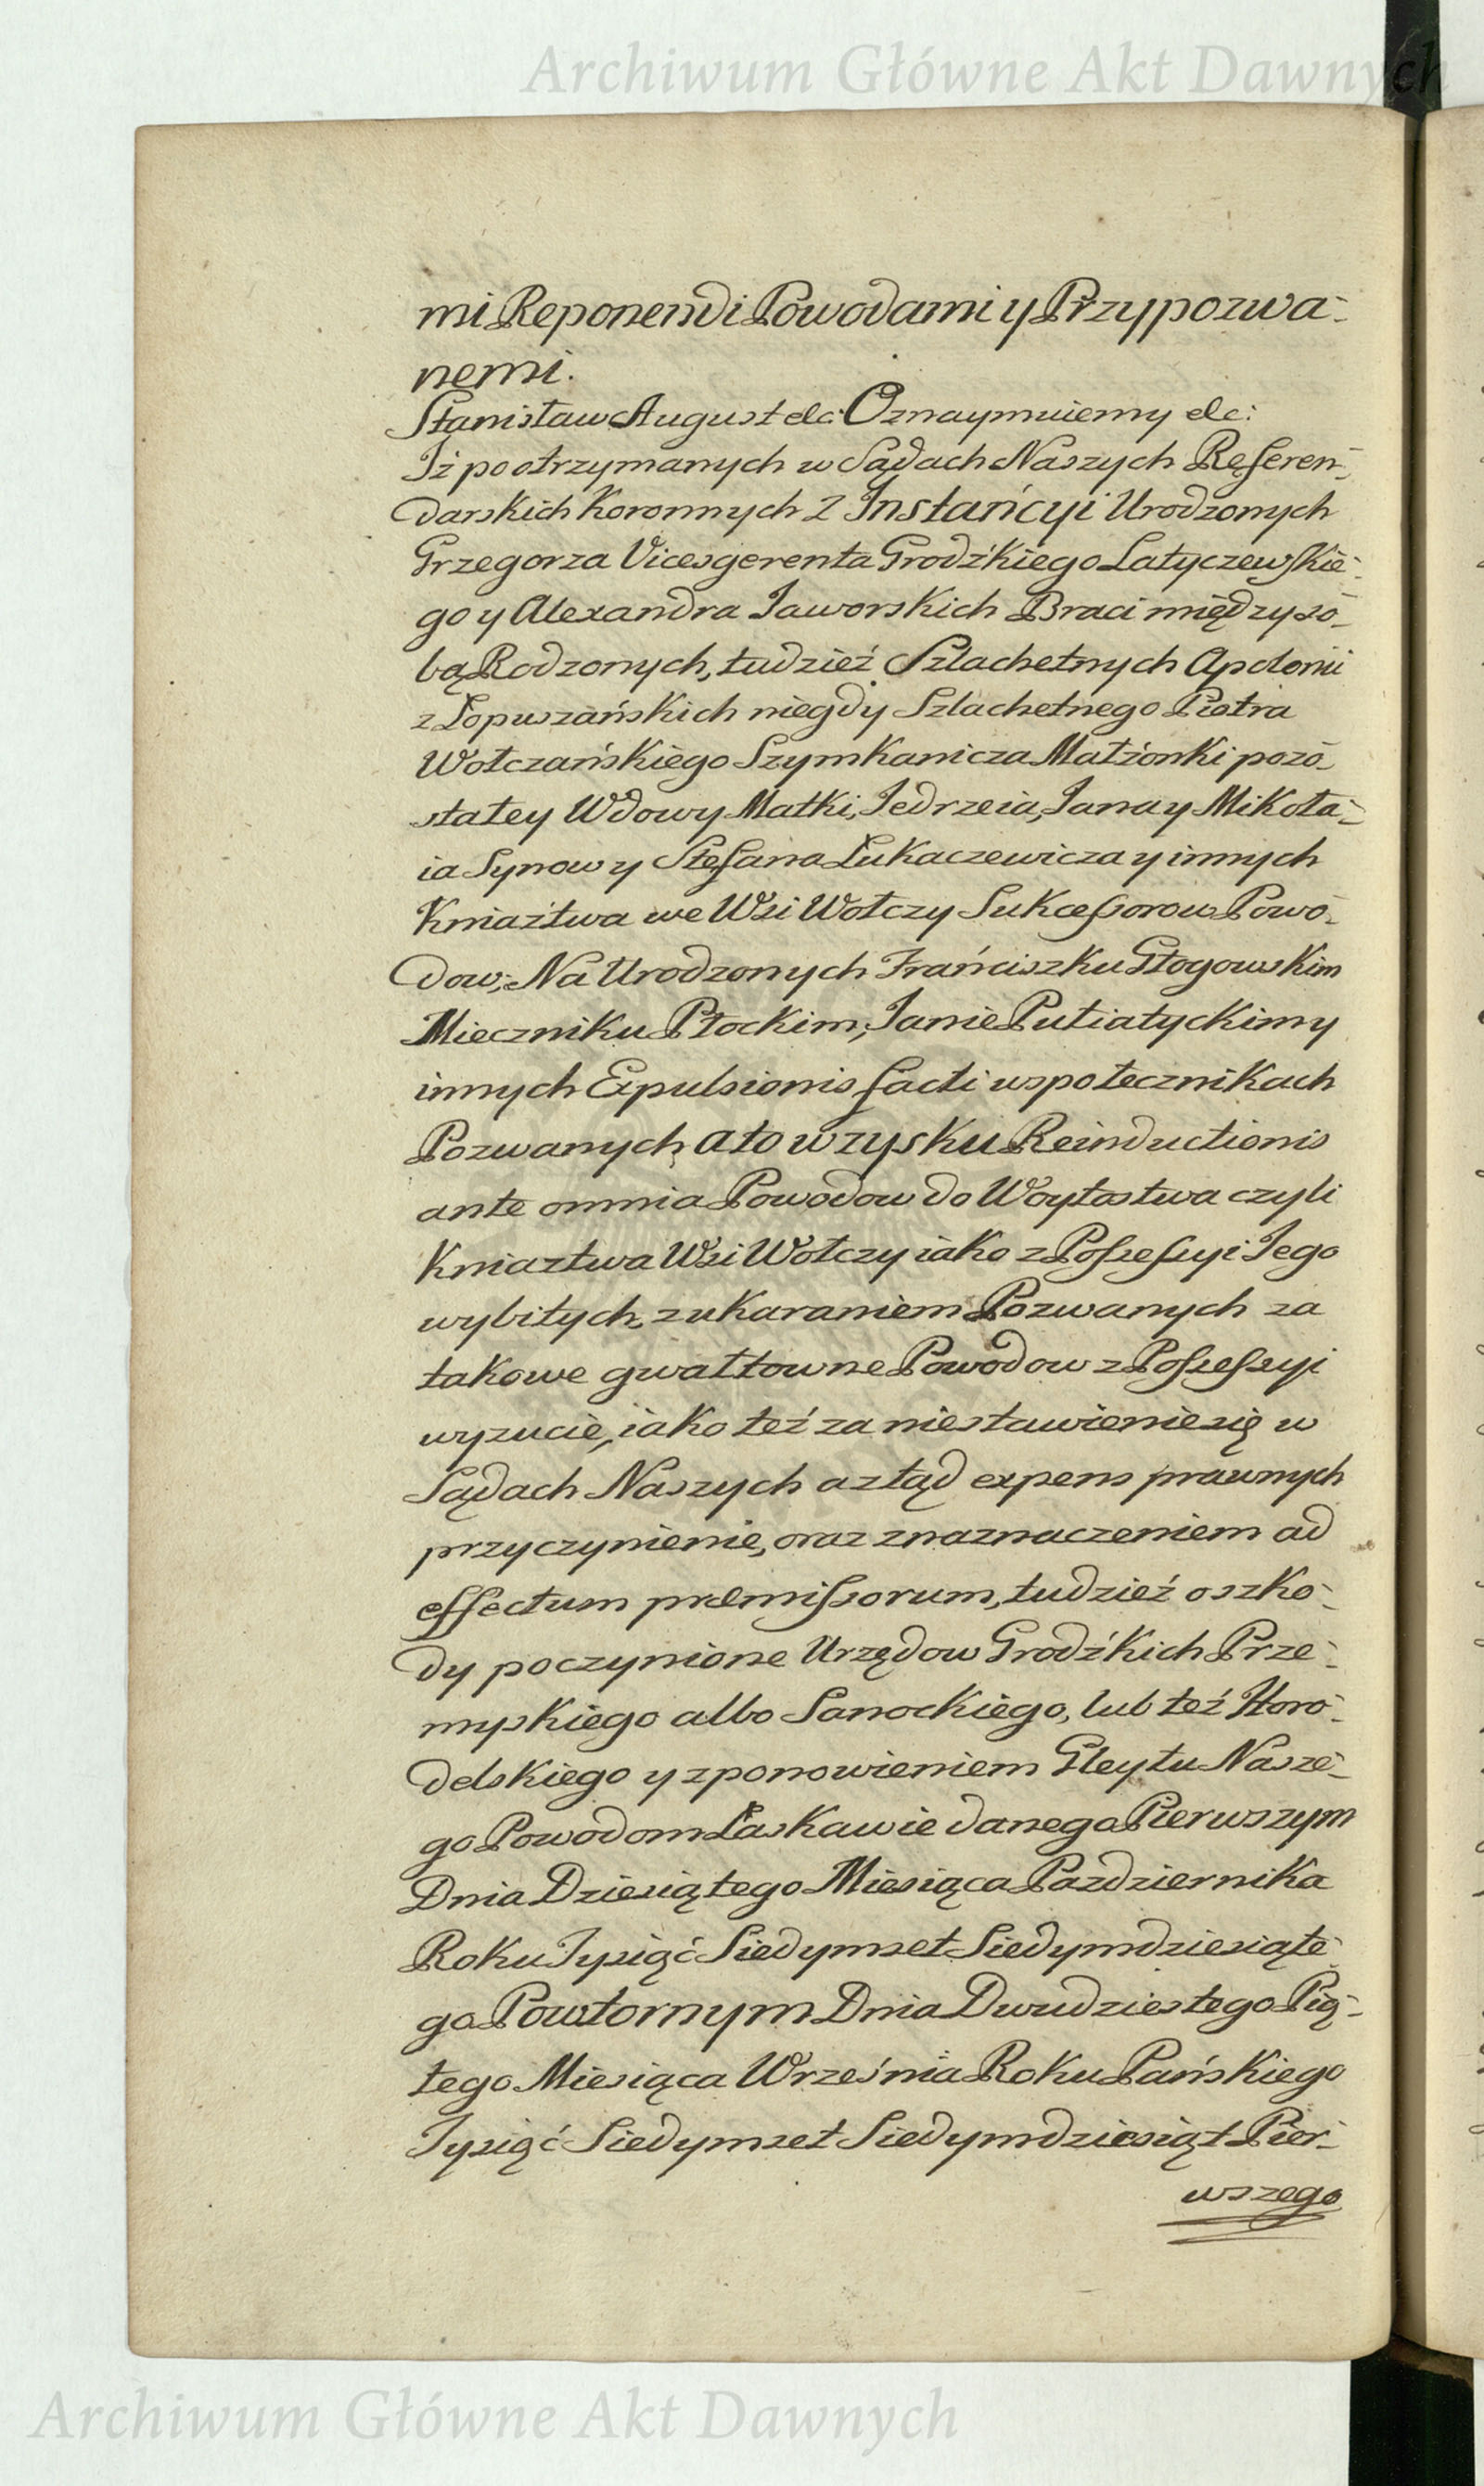 Archiwum Główne Akt Dawnych
mi Reponendi Powodami y Przypozwa-
nemi.
Stanisław August etc: Oznaymuiemy etc:
Iż po otrzymanych w Sądach Naszych Referen-
darskich Koronnych z Instańcyi Urodzonych
Grzegorza Vicesgerenta Grodźkiego Latyczewskie-
go y Alexandra Jaworskich Braci między so-
bą Rodzonych, tudzież Szlachetnych Apolonii
z Łopuszańskich niegdy Szlachetnego Piotra
Wołczańskiego Szymkanicza Małżonki pozo-
stałey Wdowy Matki, Jedrzeia, Jana y Mikoła-
ia Synow y Stefana Łukaczewicza y innych
Kniaźtwa we Wsi Wołczy Sukcessorow Powo-
dow; Na Urodzonych Frańciszku Głogowskim
Mieczniku Płockim, Janie Putiatyckim y
innych Expulsionis facti wspołecznikach
Pozwanych a to w zysku Reinductionis
ante omnia Powodow do Woytostwa czyli
Kniaztwa Wsi Wołczy iako z Possessyi Jego
wybitych, z ukaraniem Pozwanych za
takowe gwałtowne Powodow z Possessyi
wyzucie, iako też za niestawienie się w
Sądach Naszych a ztąd expens prawnych
przyczynienie, oraz z naznaczeniem ad
effectum præmissorum, tudzież o szko-
dy poczynione Urzędow Grodźkich Prze-
myskiego albo Sanockiego, lub też Horo-
delskiego y z ponowieniem Gleytu Nasze-
go Powodom Łaskawie danego Pierwszym
Dnia Dziesiątego Miesiąca Pazdziernika
Roku Tysiąć Siedymset Siedymdziesiąte-
go Powtornym Dnia Dwudziestego Pią-
tego Miesiąca Września Roku Pańskiego
Tysiąć Siedymset Siedymdziesiąt Pier-
wszego
Archiwum Główne Akt Dawnych